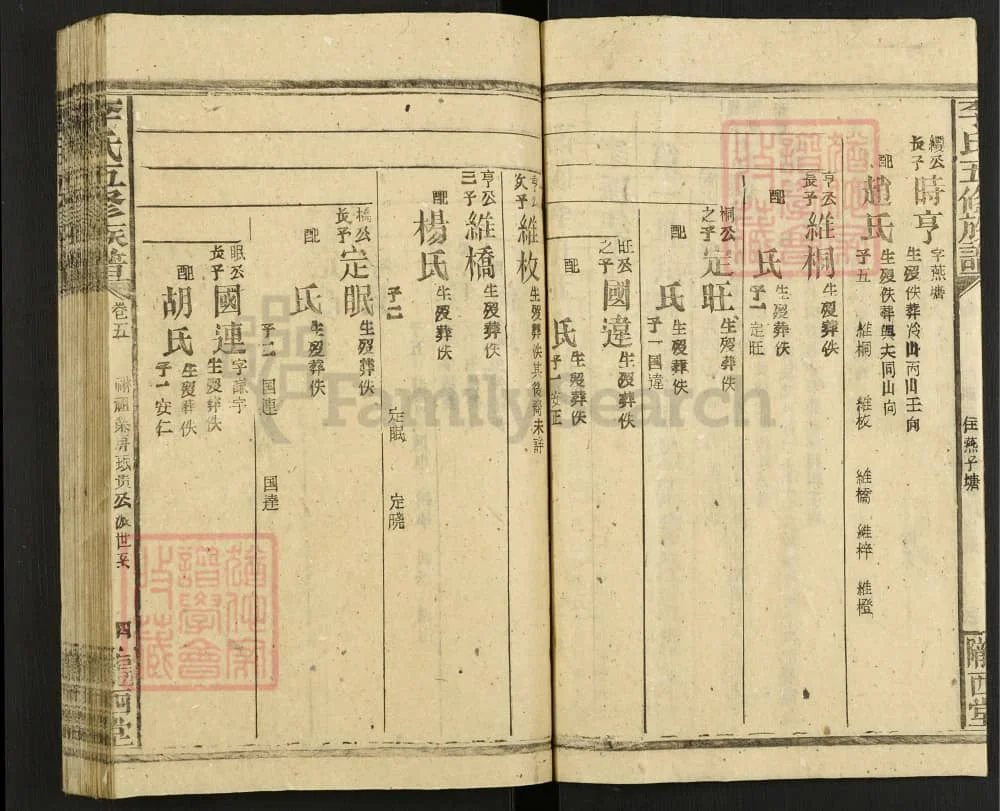 李氏五修族譜
住燕子塘
隴西堂
纓公長子時亨字燕塘生歿佚葬冷山丙山壬向
配趙氏生歿佚葬與夫同山向
子五 維桐 維枚 維橋 維梓 維橙
亨公長子維桐生歿葬佚
配 氏生歿葬佚
子一定旺
桐公之子定旺生歿葬佚
配 氏生歿葬佚
子一国達
旺公之子國達生歿葬佚
配 氏生歿葬佚
子一安正
亨公次子維枚生歿葬佚其後裔未詳
亨公三子維橋生歿葬佚
配楊氏生歿葬佚
子二 定眠 定曉
橋公長子定眠生歿葬佚
配 氏生歿葬佚
子二 国連 国達
眠公長子國連字謙字生歿葬佚
配胡氏生歿葬佚
子一安仁
李氏五修族譜
卷五
四
隴西堂
譜學會
收藏
譜學會
收藏
FamilySearch